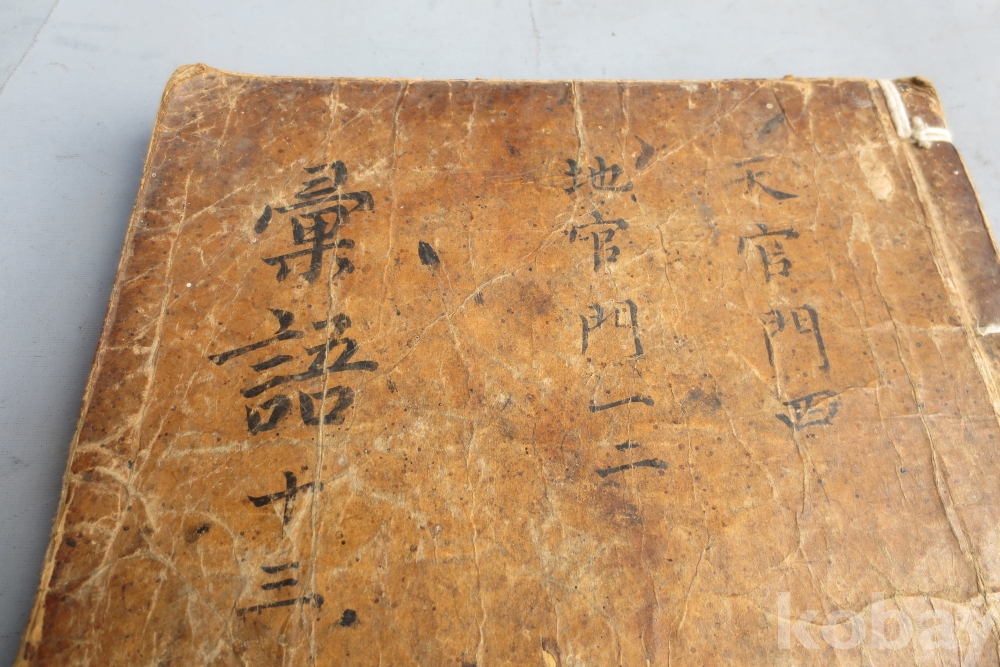 天官門四
地官門一二
彙語十三
kobay